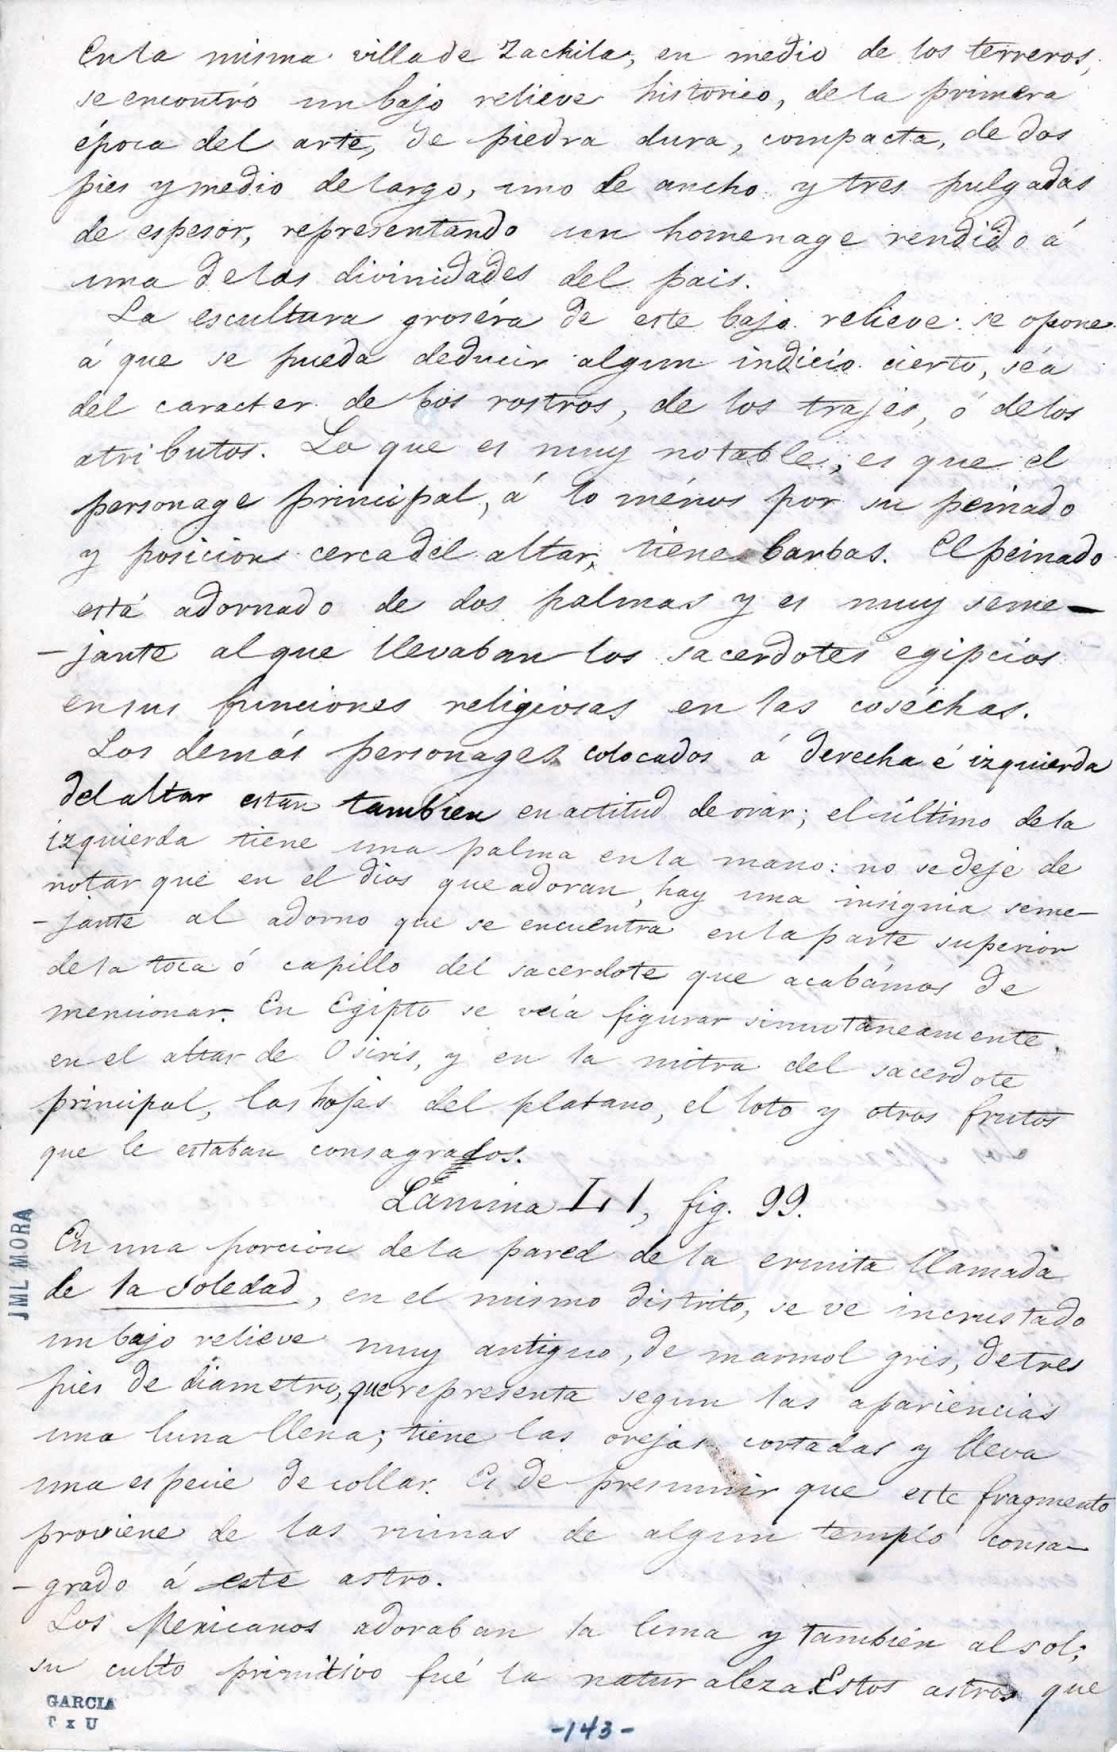 En la misma villa de Zachila, en medio de los terreros,
se encontró un bajo relieve historico, de la primera
época del arte, de piedra dura, compacta, de dos
pies y medio de largo, uno de ancho y tres pulgadas
de espesor, representando un homenage rendido á
una de las divinidades del pais.
La escultura groséra de este bajo relieve se opone
á que se pueda deducir algun indicio cierto, séa
del caracter de los rostros, de los trajes, ó de los
atributos. Lo que es muy notable, es que el
personage principal, á lo ménos por su peinado
y posicion cerca del altar, tiene barbas. El peinado
está adornado de dos palmas y es muy seme-
-jante al que llevaban los sacerdotes egipcios
en sus funciones religiosas en las coséchas.
Los demás personages colocados á derecha é izquierda
del altar estan tambien en actitud de orar; el último de la
izquierda tiene una palma en la mano: no se deje de
notar que en el dios que adoran, hay una insignia seme-
-jante al adorno que se encuentra en la parte superior
de la toca ó capillo del sacerdote que acabámos de
mencionar. En Egipto se veía figurar simultaneamente
en el altar de Osiris, y en la mitra del sacerdote
principal, las hojas del platano, el loto y otros frutos
que le estaban consagrados.
Lámina L1, fig. 99.
En una porcion de la pared de la ermita llamada
de la Soledad, en el mismo distrito, se ve incrustado
un bajo relieve muy antiguo, de marmol gris, de tres
pies de diametro, que representa segun las apariencias
una luna llena; tiene las orejas cortadas y lleva
una especie de collar. Es de presumir que este fragmento
proviene de las ruinas de algun templo consa-
-grado á este astro.
Los Mexicanos adoraban la luna y tambien al sol;
su culto primitivo fué la naturaleza. Estos astros que
JML MORA
GARCIA
-143-